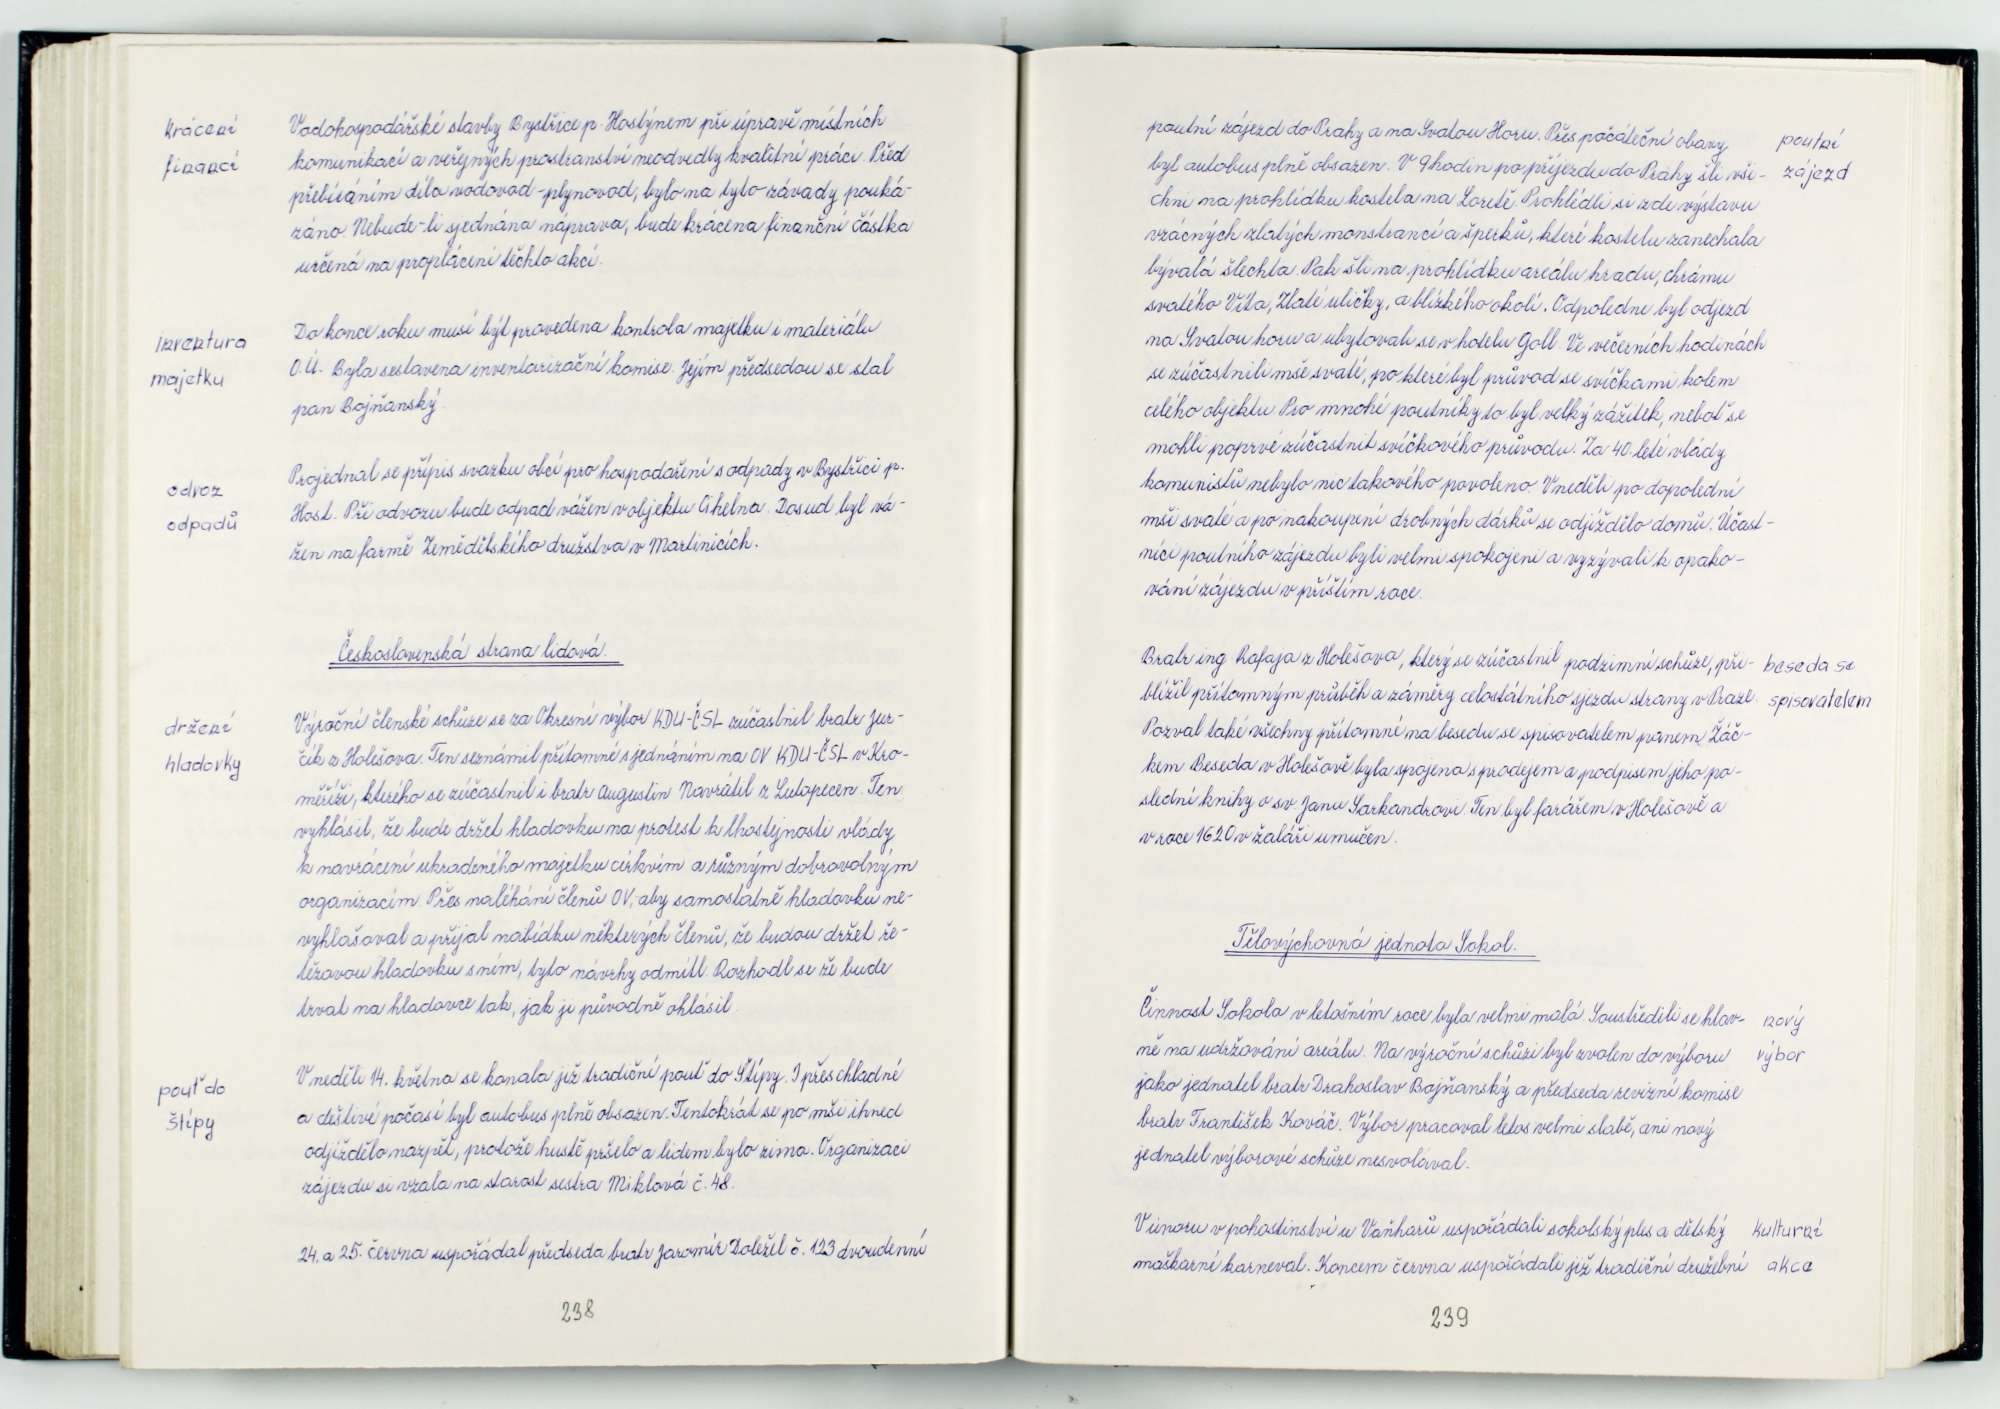 krácení
financí
Vodohospodářské stavby Bystřice p. Hostýnem při úpravě místních
komunikací a veřejných prostranství neodvedly kvalitní práci. Před
přebíráním díla vodovod-plynovod, bylo na tyto závady pouká-
záno. Nebude-li sjednána náprava, bude krácena finanční částka
určená na proplácení těchto akcí.
inventura
majetku
Do konce roku musí být provedena kontrola majetku i materiálu
O.Ú. Byla sestavena inventarizační komise. Jejím předsedou se stal
pan Bojňanský.
odvoz
odpadů
Projednal se přípis svazku obcí pro hospodaření s odpady v Bystřici p.
Host. Při odvozu bude odpad vážen v objektu Cihelna. Dosud byl vá-
žen na farmě Zemědělského družstva v Martinicích.
Československá strana lidová.
držení
hladovky
Výroční členské schůze se za Okresní výbor KDU-ČSL zúčastnil bratr Jur-
čík z Holešova. Ten seznámil přítomné s jednáním na OV KDU-ČSL v Kro-
měříži, kterého se zúčastnil i bratr Augustin Navrátil z Lutopecen. Ten
vyhlásil, že bude držet hladovku na protest k lhostejnosti vlády
k navrácení ukradeného majetku církvím a různým dobrovolným
organizacím. Přes naléhání členů OV, aby samostatně hladovku ne-
vyhlašoval a přijal nabídku některých členů, že budou držet ře-
tězovou hladovku s ním, tyto návrhy odmítl. Rozhodl se že bude
trvat na hladovce tak, jak ji původně ohlásil.
pouť do
Štípy
V neděli 14. května se konala již tradiční pouť do Štípy. I přes chladné
a deštivé počasí byl autobus plně obsazen. Tentokrát se po mši ihned
odjíždělo nazpět, protože hustě pršelo a lidem bylo zima. Organizaci
zájezdu si vzala na starost sestra Miklová č. 48.
24. a 25. června uspořádal předseda bratr Jaromír Doležel č. 123 dvoudenní
238
poutní zájezd do Prahy a na Svatou Horu. Přes počáteční obavy
byl autobus plně obsazen. V 9 hodin po příjezdu do Prahy šli vši-
chni na prohlídku kostela na Loretě. Prohlédli si zde výstavu
vzácných zlatých monstrancí a šperků, které kostelu zanechala
bývalá šlechta. Pak šli na prohlídku areálu hradu, chrámu
svatého Víta, Zlaté uličky, a blízkého okolí. Odpoledne byl odjezd
na Svatou horu a ubytovali se v hotelu Goll. Ve večerních hodinách
se zúčastnili mše svaté, po které byl průvod se svíčkami kolem
celého objektu. Pro mnohé poutníky to byl velký zážitek, neboť se
mohli poprvé zúčastnit svíčkového průvodu. Za 40. leté vlády
komunistů nebylo nic takového povoleno. V neděli po dopolední
mši svaté a po nakoupení drobných dárků se odjíždělo domů. Účast-
níci poutního zájezdu byli velmi spokojeni a vyzývali k opako-
vání zájezdu v příštím roce.
poutní
zájezd
Bratr ing Rafaja z Holešova, který se zúčastnil podzimní schůze, při-
blížil přítomným průběh a záměry celostátního sjezdu strany v Praze.
Pozval také všechny přítomné na besedu se spisovatelem panem Žáč-
kem. Beseda v Holešově byla spojena s prodejem a podpisem jeho po-
slední knihy o sv Janu Sarkandrovi. Ten byl farářem v Holešově a
v roce 1620 v žaláři umučen.
beseda se
spisovatelem
Tělovýchovná jednota Sokol.
Činnost Sokola v letošním roce byla velmi malá. Soustředili se hlav-
ně na udržování areálu. Na výroční schůzi byl zvolen do výboru
jako jednatel bratr Drahoslav Bojňanský a předseda revizní komise
bratr František Kováč. Výbor pracoval letos velmi slabě, ani nový
jednatel výborové schůze nesvolával.
nový
výbor
V únoru v pohostinství u Vaňharů uspořádali sokolský ples a dětský
maškarní karneval. Koncem června uspořádali již tradiční družební
kulturní
akce
239